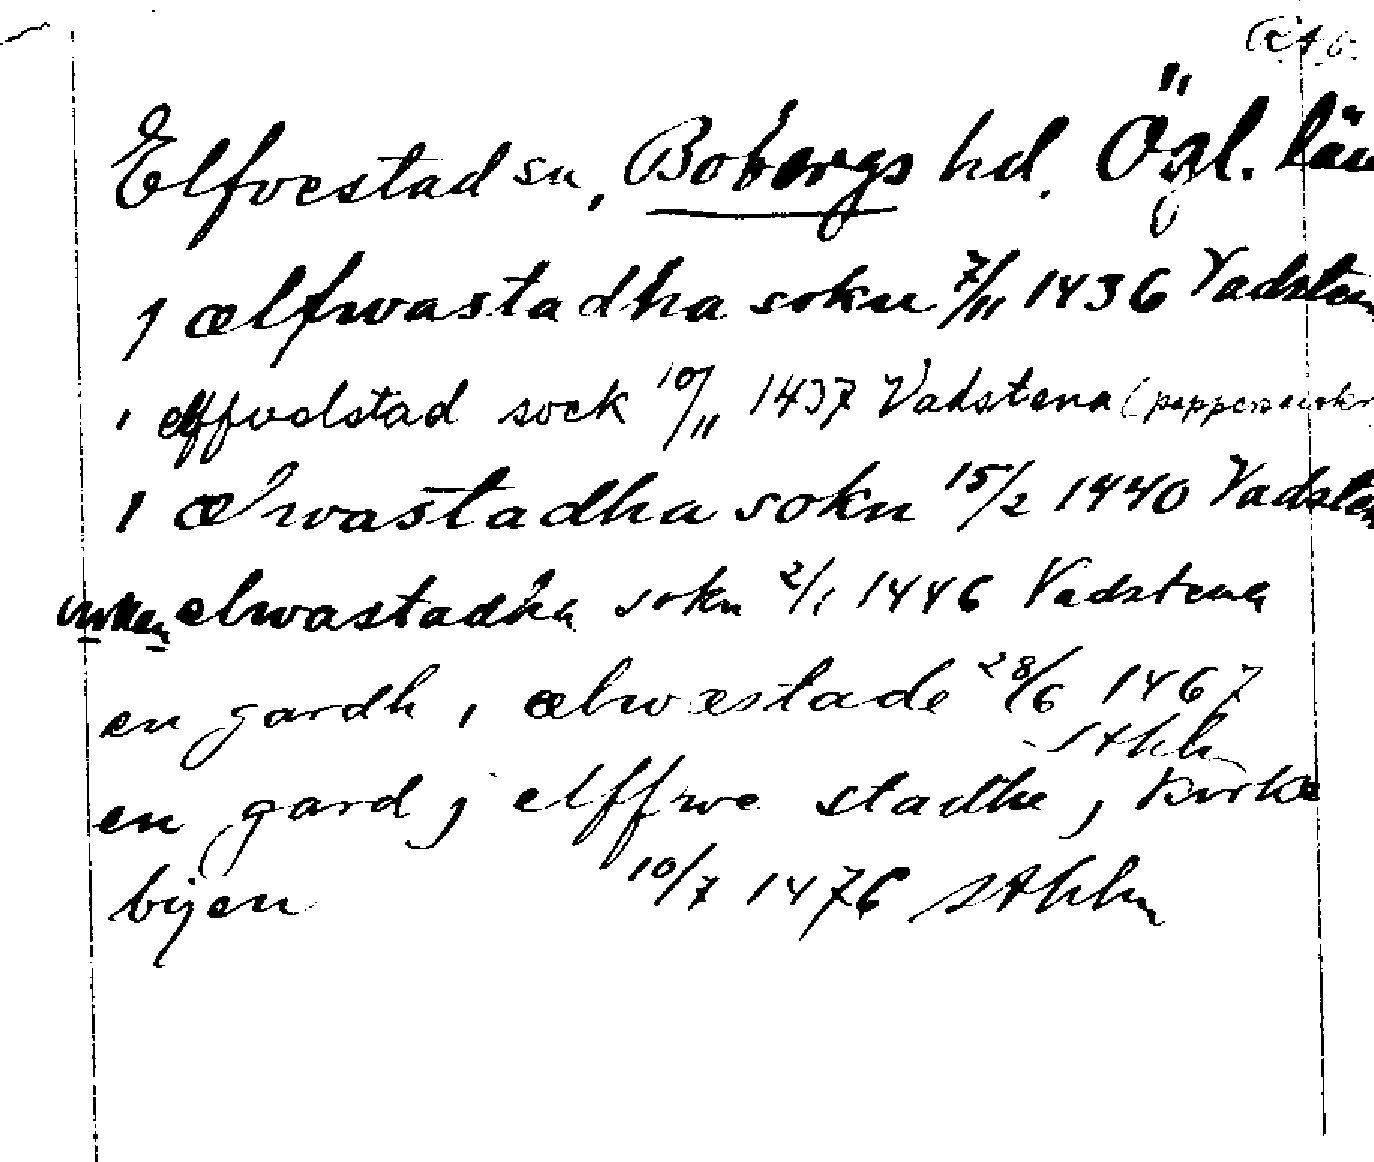 RAO.
Elfvestad sn, Bobergs hd. Ögl. län
j ælfwastadha sokn 7/11 1436 Vadsten
i elffvelstad sock 10/11 1437 Vadstena (pappersavskr
i ælwastadha sokn 15/2 1440 Vadsten
elwastadha sokn 2/1 1446 Vadstena
en gardh i ælwæstade 28/6 1467
Sthlm
en gard j elffwe stadhe j kirke
byen 10/7 1476 Sthlm